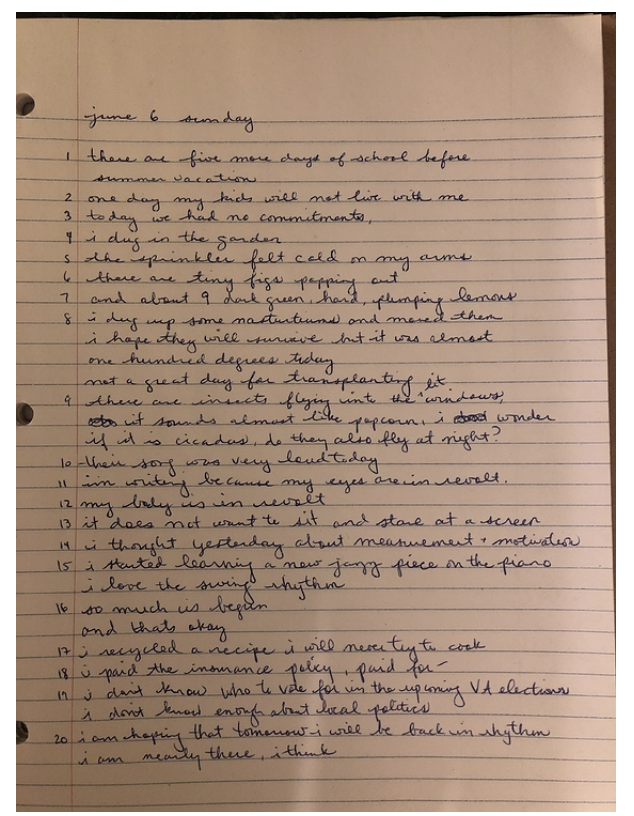 june 6 sunday
1 there are five more days of school before
summer vacation
2 one day my kids will not live with me
3 today we had no commitments,
4 i dug in the garden
5 the sprinkler felt cold on my arms
6 there are tiny figs popping out
7 and about 9 dark green, hard, plumping lemons
8 i dug up some nasturtiums and moved them
i hope they will survive but it was almost
one hundred degrees today
not a great day for transplanting
9 there are insects flying into the lit windows,
it sounds almost like popcorn, i wonder
if it is cicadas, do they also fly at night?
10 their song was very loud today
11 im writing because my eyes are in revolt.
12 my body is in revolt
13 it does not want to sit and stare at a screen
14 i thought yesterday about measurement + motivation
15 i started learning a new jazzy piece on the piano
i love the swing rhythm
16 so much is begun
and thats okay
17 i recycled a recipe i will never try to cook
18 i paid the insurance policy, paid for-
19 i dont know who to vote for in the upcoming VA elections
i dont know enough about local politics
20 i am hoping that tomorrow i will be back in rhythm
i am nearly there, i think